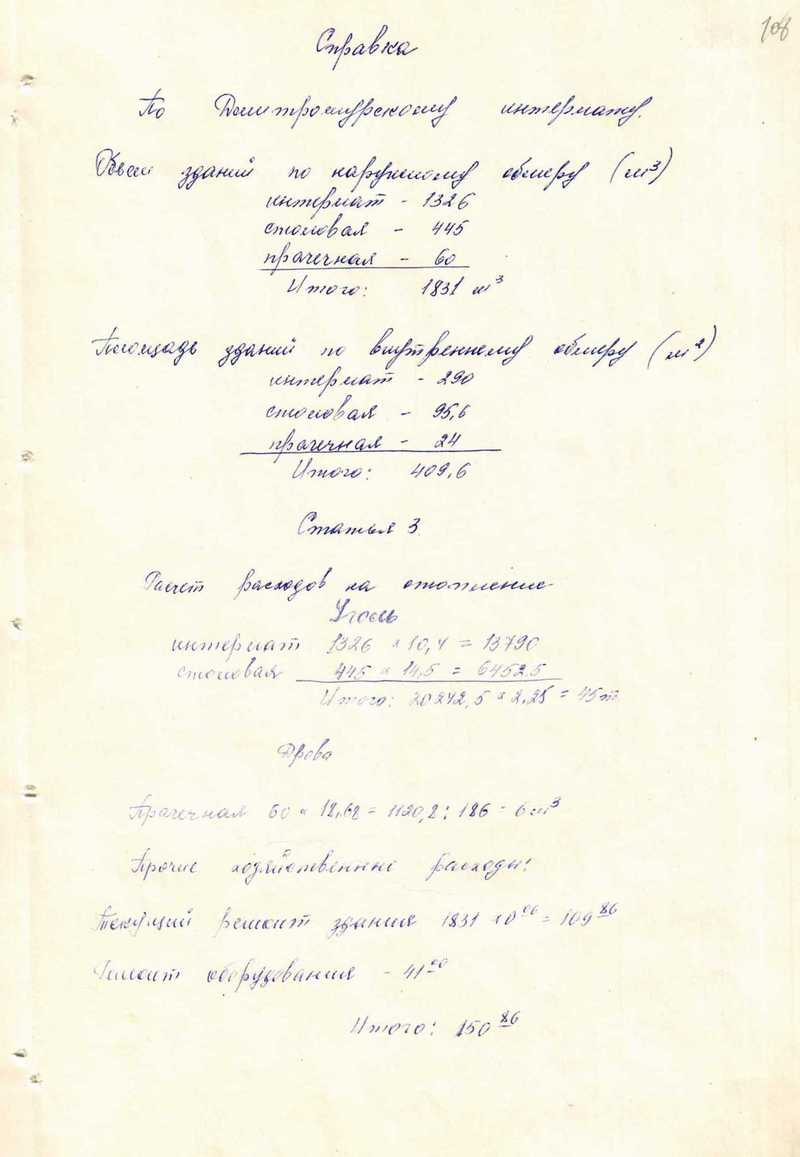 108
Справка
По Дмитрошурскому интернату.
Объем зданий по наружному обмеру (м³)
интернат - 1326
столовая - 445
прачечная - 60
Итого: 1831 м³
Площадь зданий по внутреннему обмеру (м²)
интернат - 290
столовая - 95,6
прачечная - 24
Итого: 409,6
Статья 3
Расчет расходов на отопление
Уголь
интернат 1326 × 10,4 = 13790
столовая 445 × 14,5 = 6452,5
Итого: 20242,5 × 2,25 = 45т
Дрова
Прачечная 60 × = 1120,2 : 186 = 6 м³
Прочие хозяйственные расходы:
Текущий ремонт здания 1831 × 0⁰⁶ = 109⁸⁶
Ремонт оборудования - 41⁰⁰
Итого: 150⁸⁶